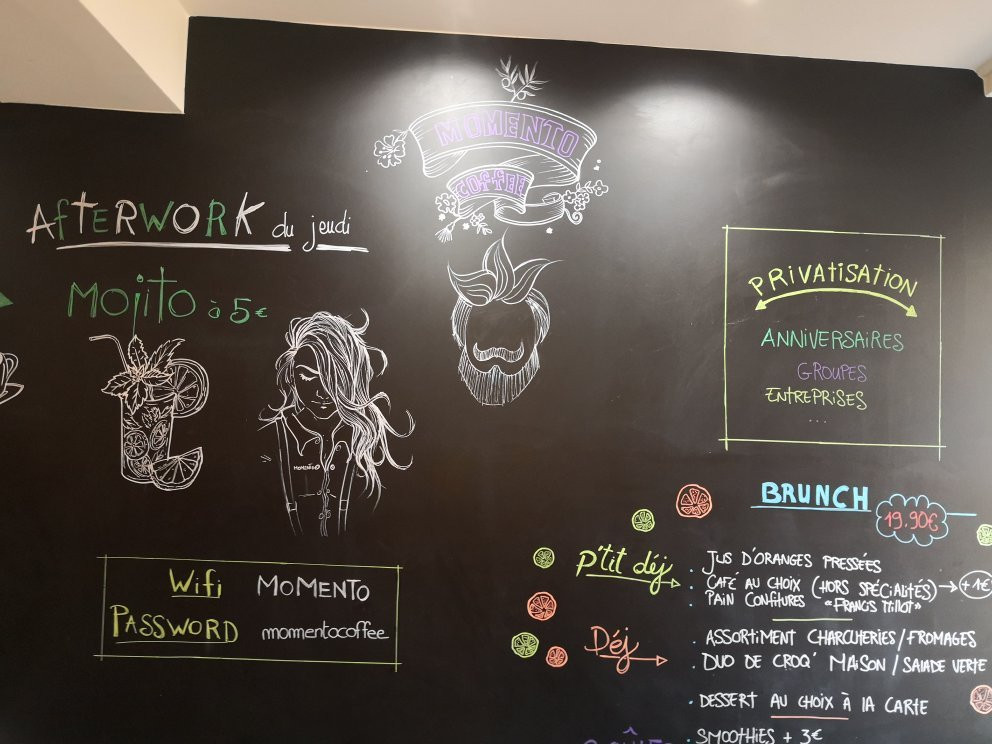 MOMENTO
COFFEE
AfTERWORK du jeudi
MOjitO à 5€
MOMENTO
Wifi MOMENTO
PASSWORD momentocoffee
PRIVATISATION
ANNIVERSAIRES
GROUPES
ENTREPRISES
...
BRUNCH 19.90€
P'tit déj
. JUS D'ORANGES PRESSÉES
. CAFÉ AU CHOIX (HORS SPÉCIALITÉS) → +1€
. PAIN CONFITURES "FRANCIS MIOT"
Déj
. ASSORTIMENT CHARCUTERIES / FROMAGES
. DUO DE CROQ' MAISON / SALADE VERTE
. DESSERT AU CHOIX À LA CARTE
. SMOOTHIES + 3€